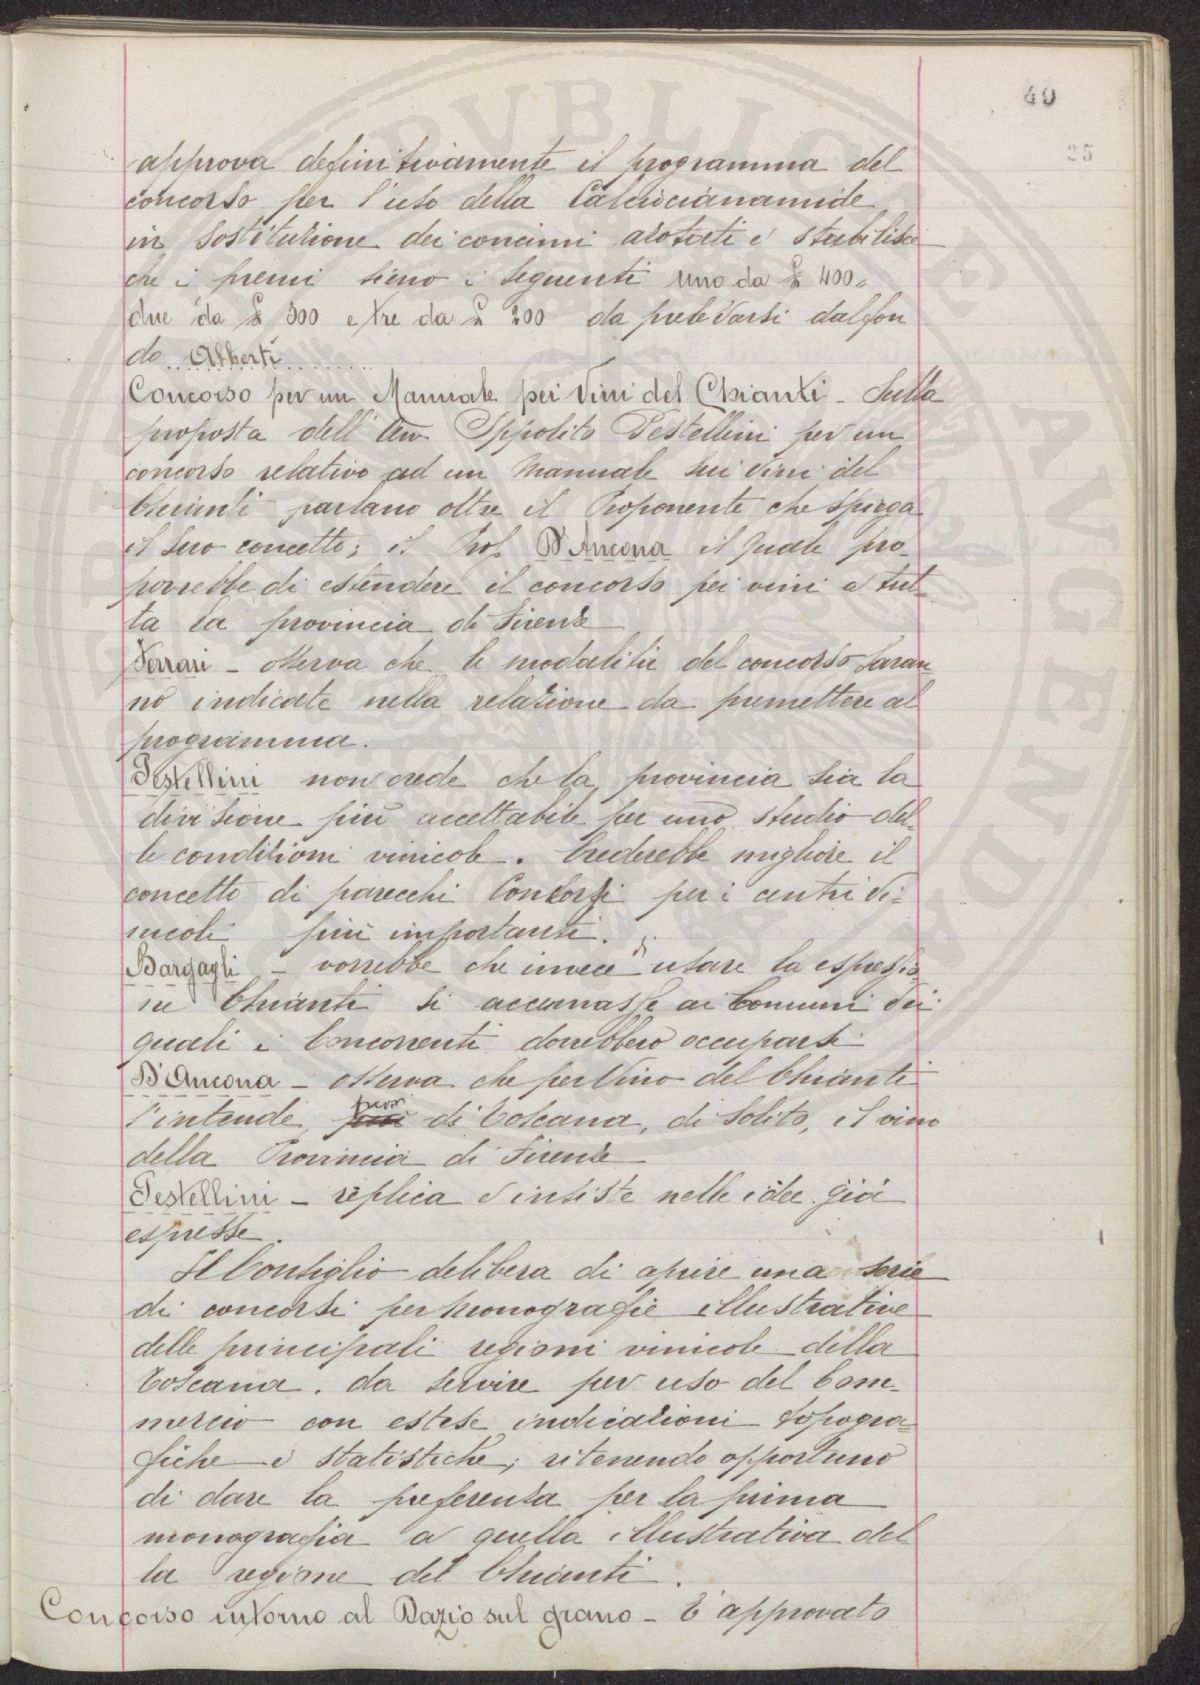 40
25
approva definitivamente il programma del
concorso per l'uso della Calciocianamide
in sostituzione dei concimi azotati e stabilisce
che i premi sieno i seguenti uno da £ 400=
due da £ 300 e tre da £ 200 da prelevarsi dal fon
do Alberti
Concorso per un Manuale pei Vini del Chianti - Sulla
proposta dell' Avv. Ippolito Pestellini per un
concorso relativo ad un Manuale sui vini del
Chianti parlano oltre il Proponente che spiega
il suo concetto; il Prof. D'Ancona il quale pro-
porrebbe di estendere il concorso pei vini a tut-
ta la provincia di Firenze
Ferrari - osserva che le modalità del concorso saran
no indicate nella relazione da premettere al
programma.
Pestellini non crede che la provincia sia la
divisione più accettabile per uno studio del-
le condizioni vinicole. Crederebbe migliore il
concetto di parecchi Concorsi per i centri vi-
nicoli più importanti.
Bargagli - vorrebbe che invece di usare la espressio
ne Chianti si accennasse ai Comuni dei
quali i Concorrenti dovrebbero occuparsi
D'Ancona - osserva che per Vino del Chianti
s'intende, fuori di Toscana, di solito, il vino
della Provincia di Firenze
Pestellini - replica e insiste nelle idee già
espresse.
Il Consiglio delibera di aprire una serie
di concorsi per Monografie illustrative
delle principali regioni vinicole della
Toscana. da servire per uso del Com-
mercio con estese indicazioni topogra-
fiche e statistiche; ritenendo opportuno
di dare la preferenza per la prima
monografia a quella illustrativa del
la regione del Chianti.
Concorso intorno al Dazio sul grano - E' approvato